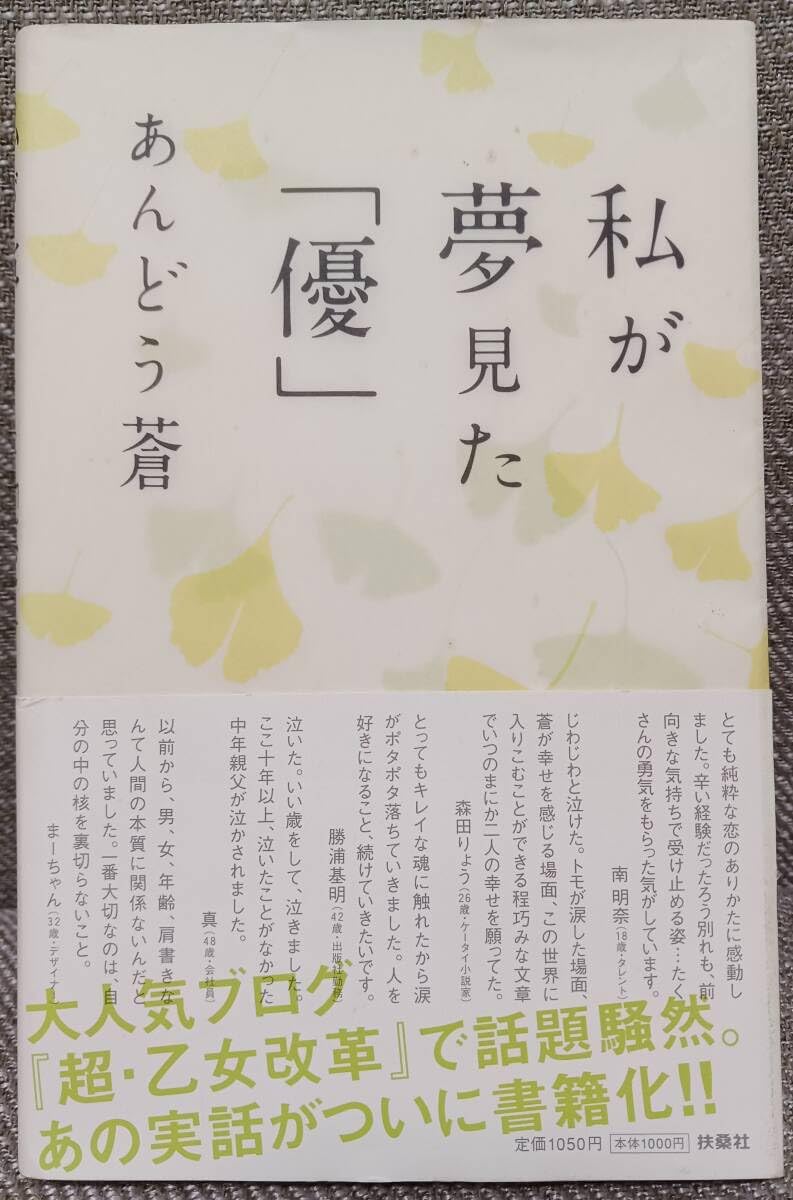 私が
夢見た
「優」
あんどう蒼
とても純粋な恋のありかたに感動し
ました。辛い経験だったろう別れも、前
向きな気持ちで受け止める姿…たく
さんの勇気をもらった気がしています。
南 明奈(18歳・タレント)
じわじわと泣けた。トモが涙した場面、
蒼が幸せを感じる場面、この世界に
入りこむことができる程巧みな文章
でいつのまにか二人の幸せを願ってた。
森田りょう(26歳・ケータイ小説家)
とってもキレイな魂に触れたから涙
がポタポタ落ちていきました。人を
好きになること、続けていきたいです。
勝浦基明(42歳・出版社勤務)
泣いた。いい歳をして、泣きました。
ここ十年以上、泣いたことがなかった
中年親父が泣かされました。
真(48歳・会社員)
以前から、男、女、年齢、肩書きな
んて人間の本質に関係ないんだと
思っていました。一番大切なのは、自
分の中の核を裏切らないこと。
まーちゃん(32歳・デザイナー)
大人気ブログ
『超・乙女改革』で話題騒然。
あの実話がついに書籍化!!
定価1050円 本体1000円 扶桑社